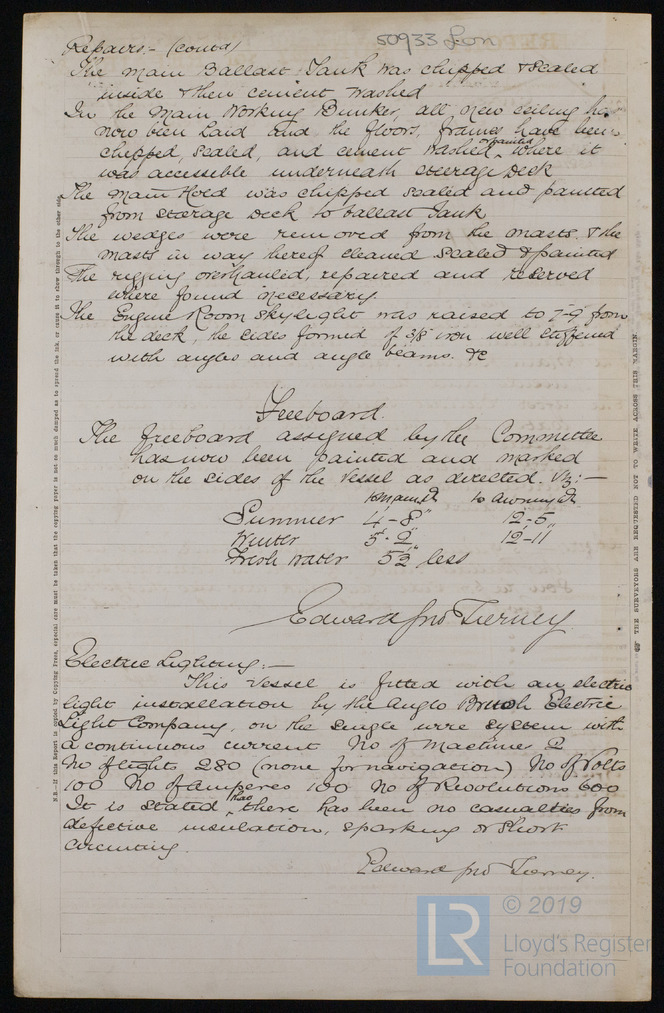 50933 Lon
Repairs - (contd)
The Main Ballast Tank was chipped & Scaled
inside & then cement washed
In the Main Working Bunker, all new ceiling has
now been laid and the floors, frames have been
chipped, scaled, and cement washed & painted where it
was accessible underneath steerage Deck
The Main Hold was chipped scaled and painted
from storage Deck to ballast Tank
The wedges were removed from the masts & the
masts in way hereof cleaned scaled & painted
The rigging overhauled, repaired and renewed
where found necessary.
The Engine Room skylight was raised to 7-9 from
the deck, the sides formed of 3/8 iron well stiffened
with angles and angle beams. &c
Freeboard.
The freeboard assigned by the Committee
has now been painted and marked
on the sides of the Vessel as directed. Viz:-
to main dk to awning dk
Summer 4-8" 12-5"
Winter 5-2" 12-11
Fresh water less
Edward Jno Tierney
Electric Lighting:-
This Vessel is fitted with an electric
light installation by the Anglo British Electric
Light Company, on the single wire system with
a continuous current No of Machines 2
No of lights 280 (none for navigation) No of Volts
100 No of Amperes 100 No of Revolutions 600
It is stated there has been no casualties from
defective insulation, sparking or short
circuiting.
Edward Jno Tierney.
N.B.—If this Report is copied by Copying Press, especial care must be taken that the copying paper is not so much damped as to spread the ink, or cause it to show through to the other side.
THE SURVEYORS ARE REQUESTED NOT TO WRITE ACROSS THIS MARGIN.
LR
© 2019
Lloyd's Register
Foundation